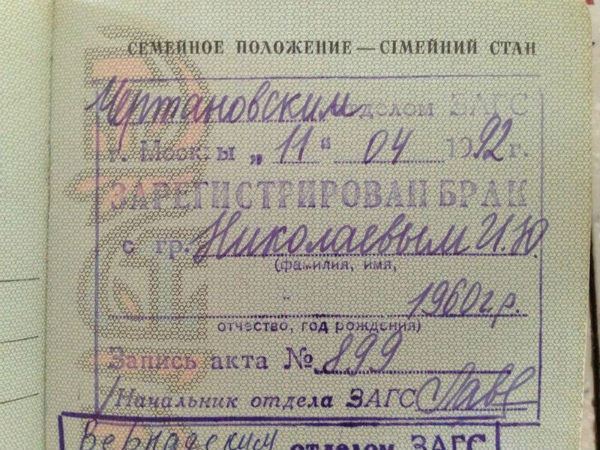 СЕМЕЙНОЕ ПОЛОЖЕНИЕ — СІМЕЙНИЙ СТАН
Чертановским отделом ЗАГС
г. Москвы „11“ 04 1992 г.
ЗАРЕГИСТРИРОВАН БРАК
с гр. Николаевым И.Ю.
(фамилия, имя,
1960г.р.
отчество, год рождения)
Запись акта № 899
Начальник отдела ЗАГС
Вернадским отделом ЗАГС